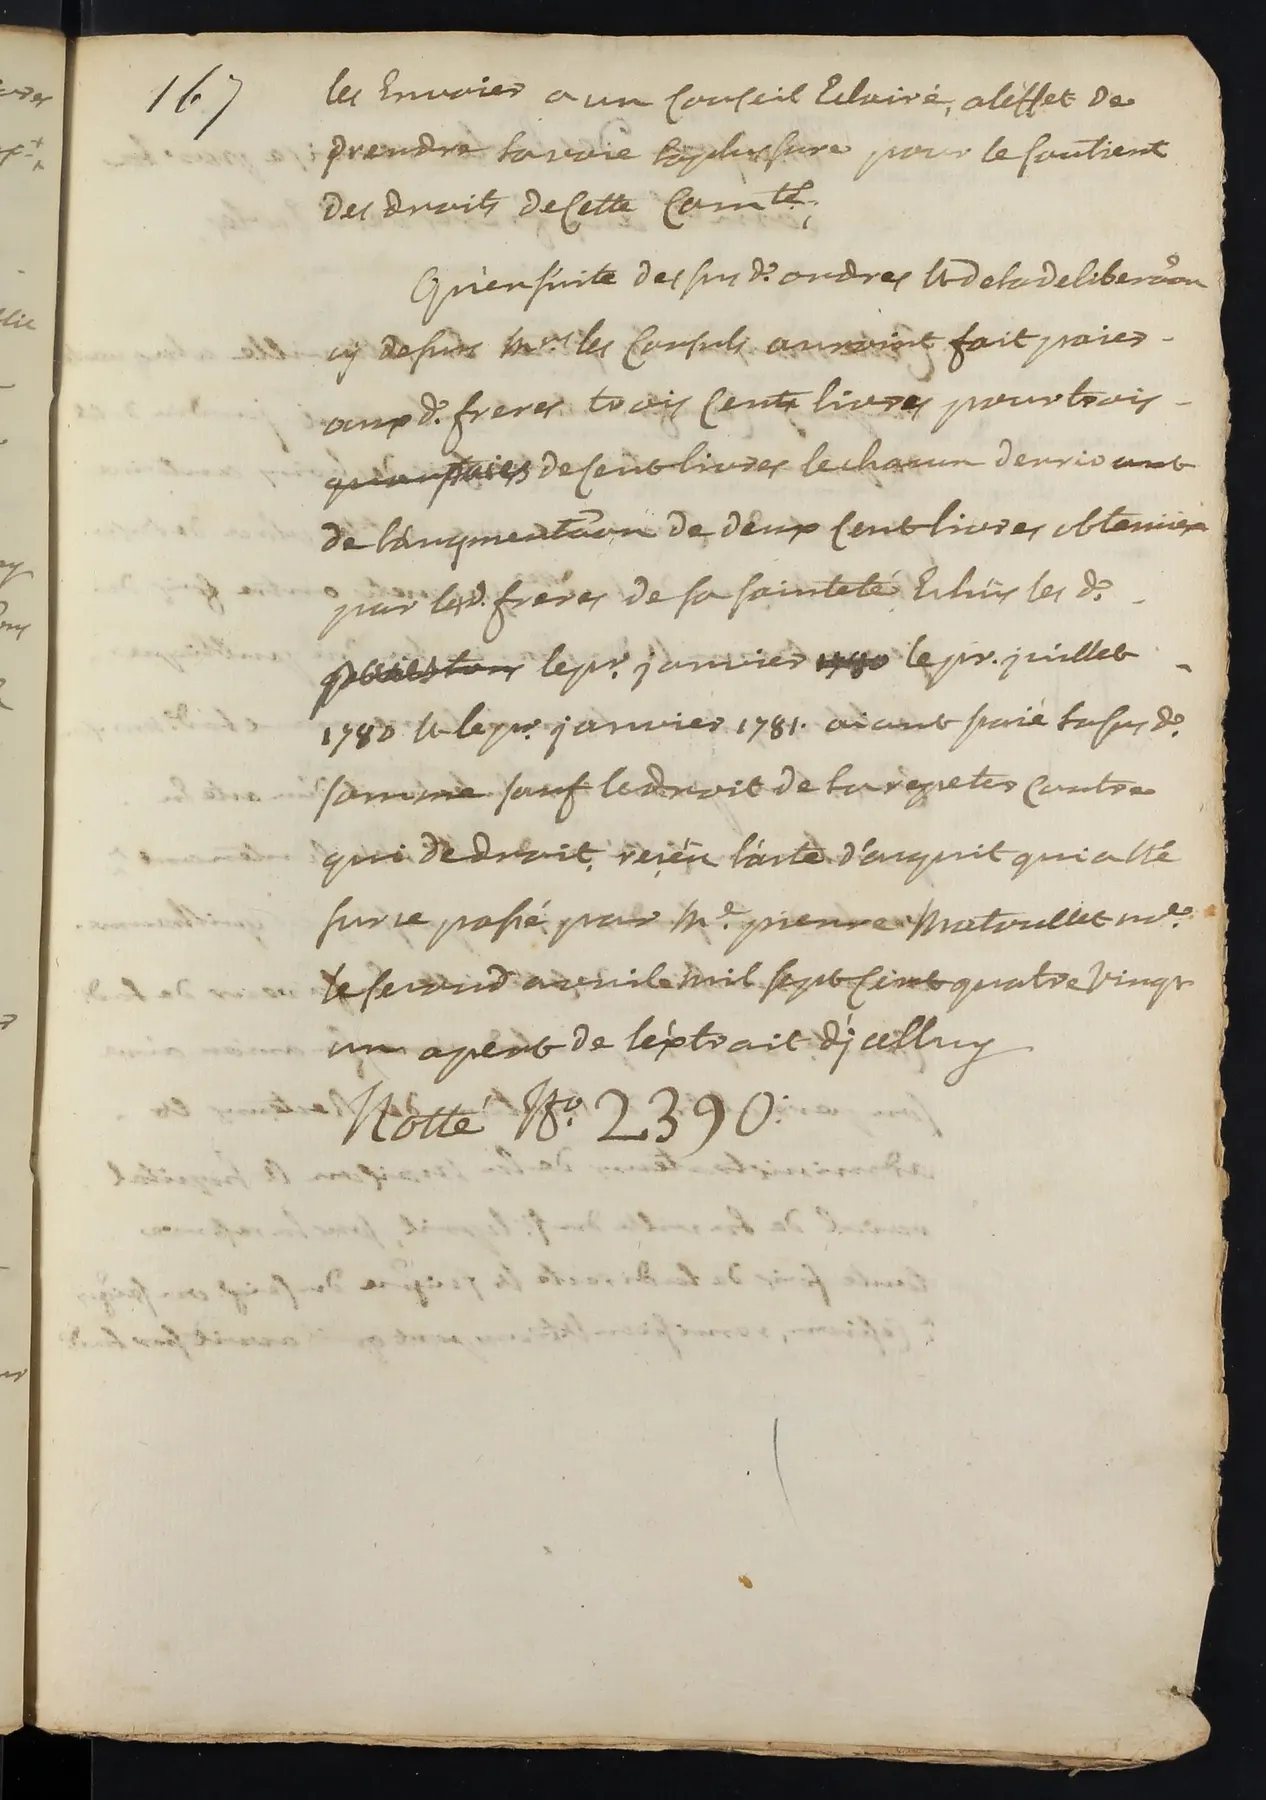 167
les Envoier a un Conseil Eclairé, a léffet de
prendre la voie la plus sure pour le soutient
des droits de Cette Comté.;
Qu'ensuite des sus d. ordres Et de la deliberaon
cy dessus Mrs les Consuls auroint fait paier
aux d. freres trois Cents livres pour trois
paies de Cent livres le chacun
de l'augmentaon de deux Cent livres obtenüe
par les d. fréres de sa sainteté Echüs les d.
le pr. janvier 1780 le pr. juillet
1780 Et le pr. janvier 1781. aiant paié la sus d.
somme sauf le droit de la repeter Contre
qui de droit, reçeu l'acte d'acquit qui a Eté
sur ce passé par Me. pierre Matoullet nre.
le second avril mil sept Cent quatre Vingt
un apert de l'éxtrait d'jcelluy
Notté No. 2390.